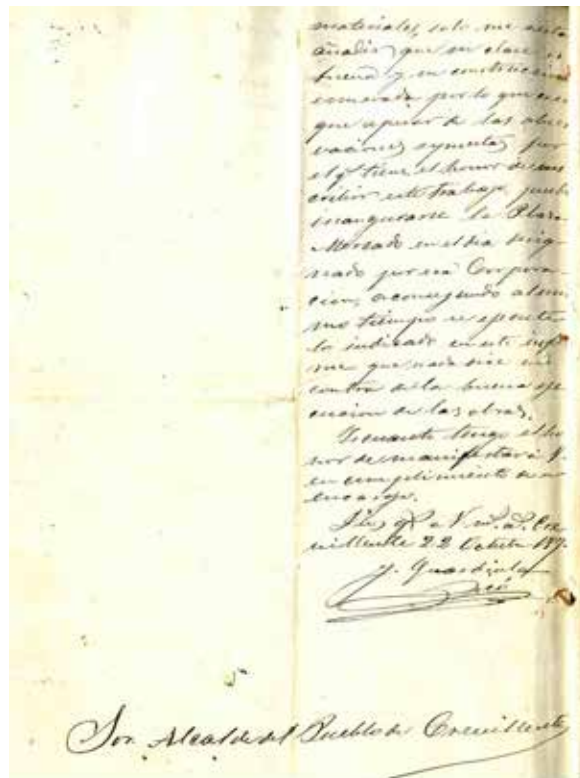 materiales, solo me resta
añadir que su clase es
buena y su construccion
esmerada por lo que creo
que apesar de las obser
vaciones expuestas por
el qe tiene el honor de sus
cribir este trabajo, puede
inaugurarse la Plaza
Mercado en el dia desig
nado por esa Corpora
cion, aconsejando al mis
mo tiempo se ejecute
lo indicado en este infor
me que nada dice en
contra de la buena eje
cucion de las obras.
Es cuanto tengo el ho
nor de manifestar á V.
en cumplimiento de su
encargo.
Dios gde a V. m. a. Cre
villente 22 Octubre 187
J. Guardiola
Picó
Sor. Alcalde del Pueblo de Crevillente